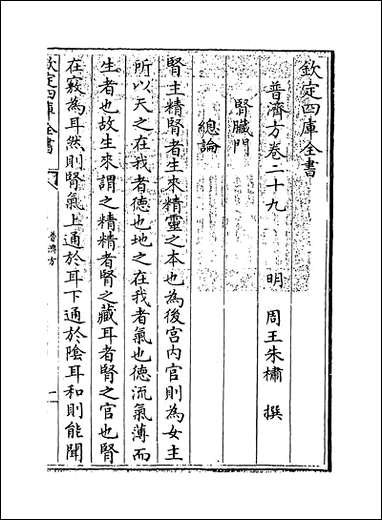 欽定四庫全書
普濟方卷二十九　明　周王朱橚　撰
腎臟門
總論
腎主精腎者生來精靈之本也為後宫内官則為女主
所以天之在我者德也地之在我者氣也德流氣薄而
生者也故生來謂之精精者腎之藏耳者腎之官也腎
在竅為耳然則腎氣上通於耳下通於陰耳和則能聞
欽定四庫全書
普濟方
一